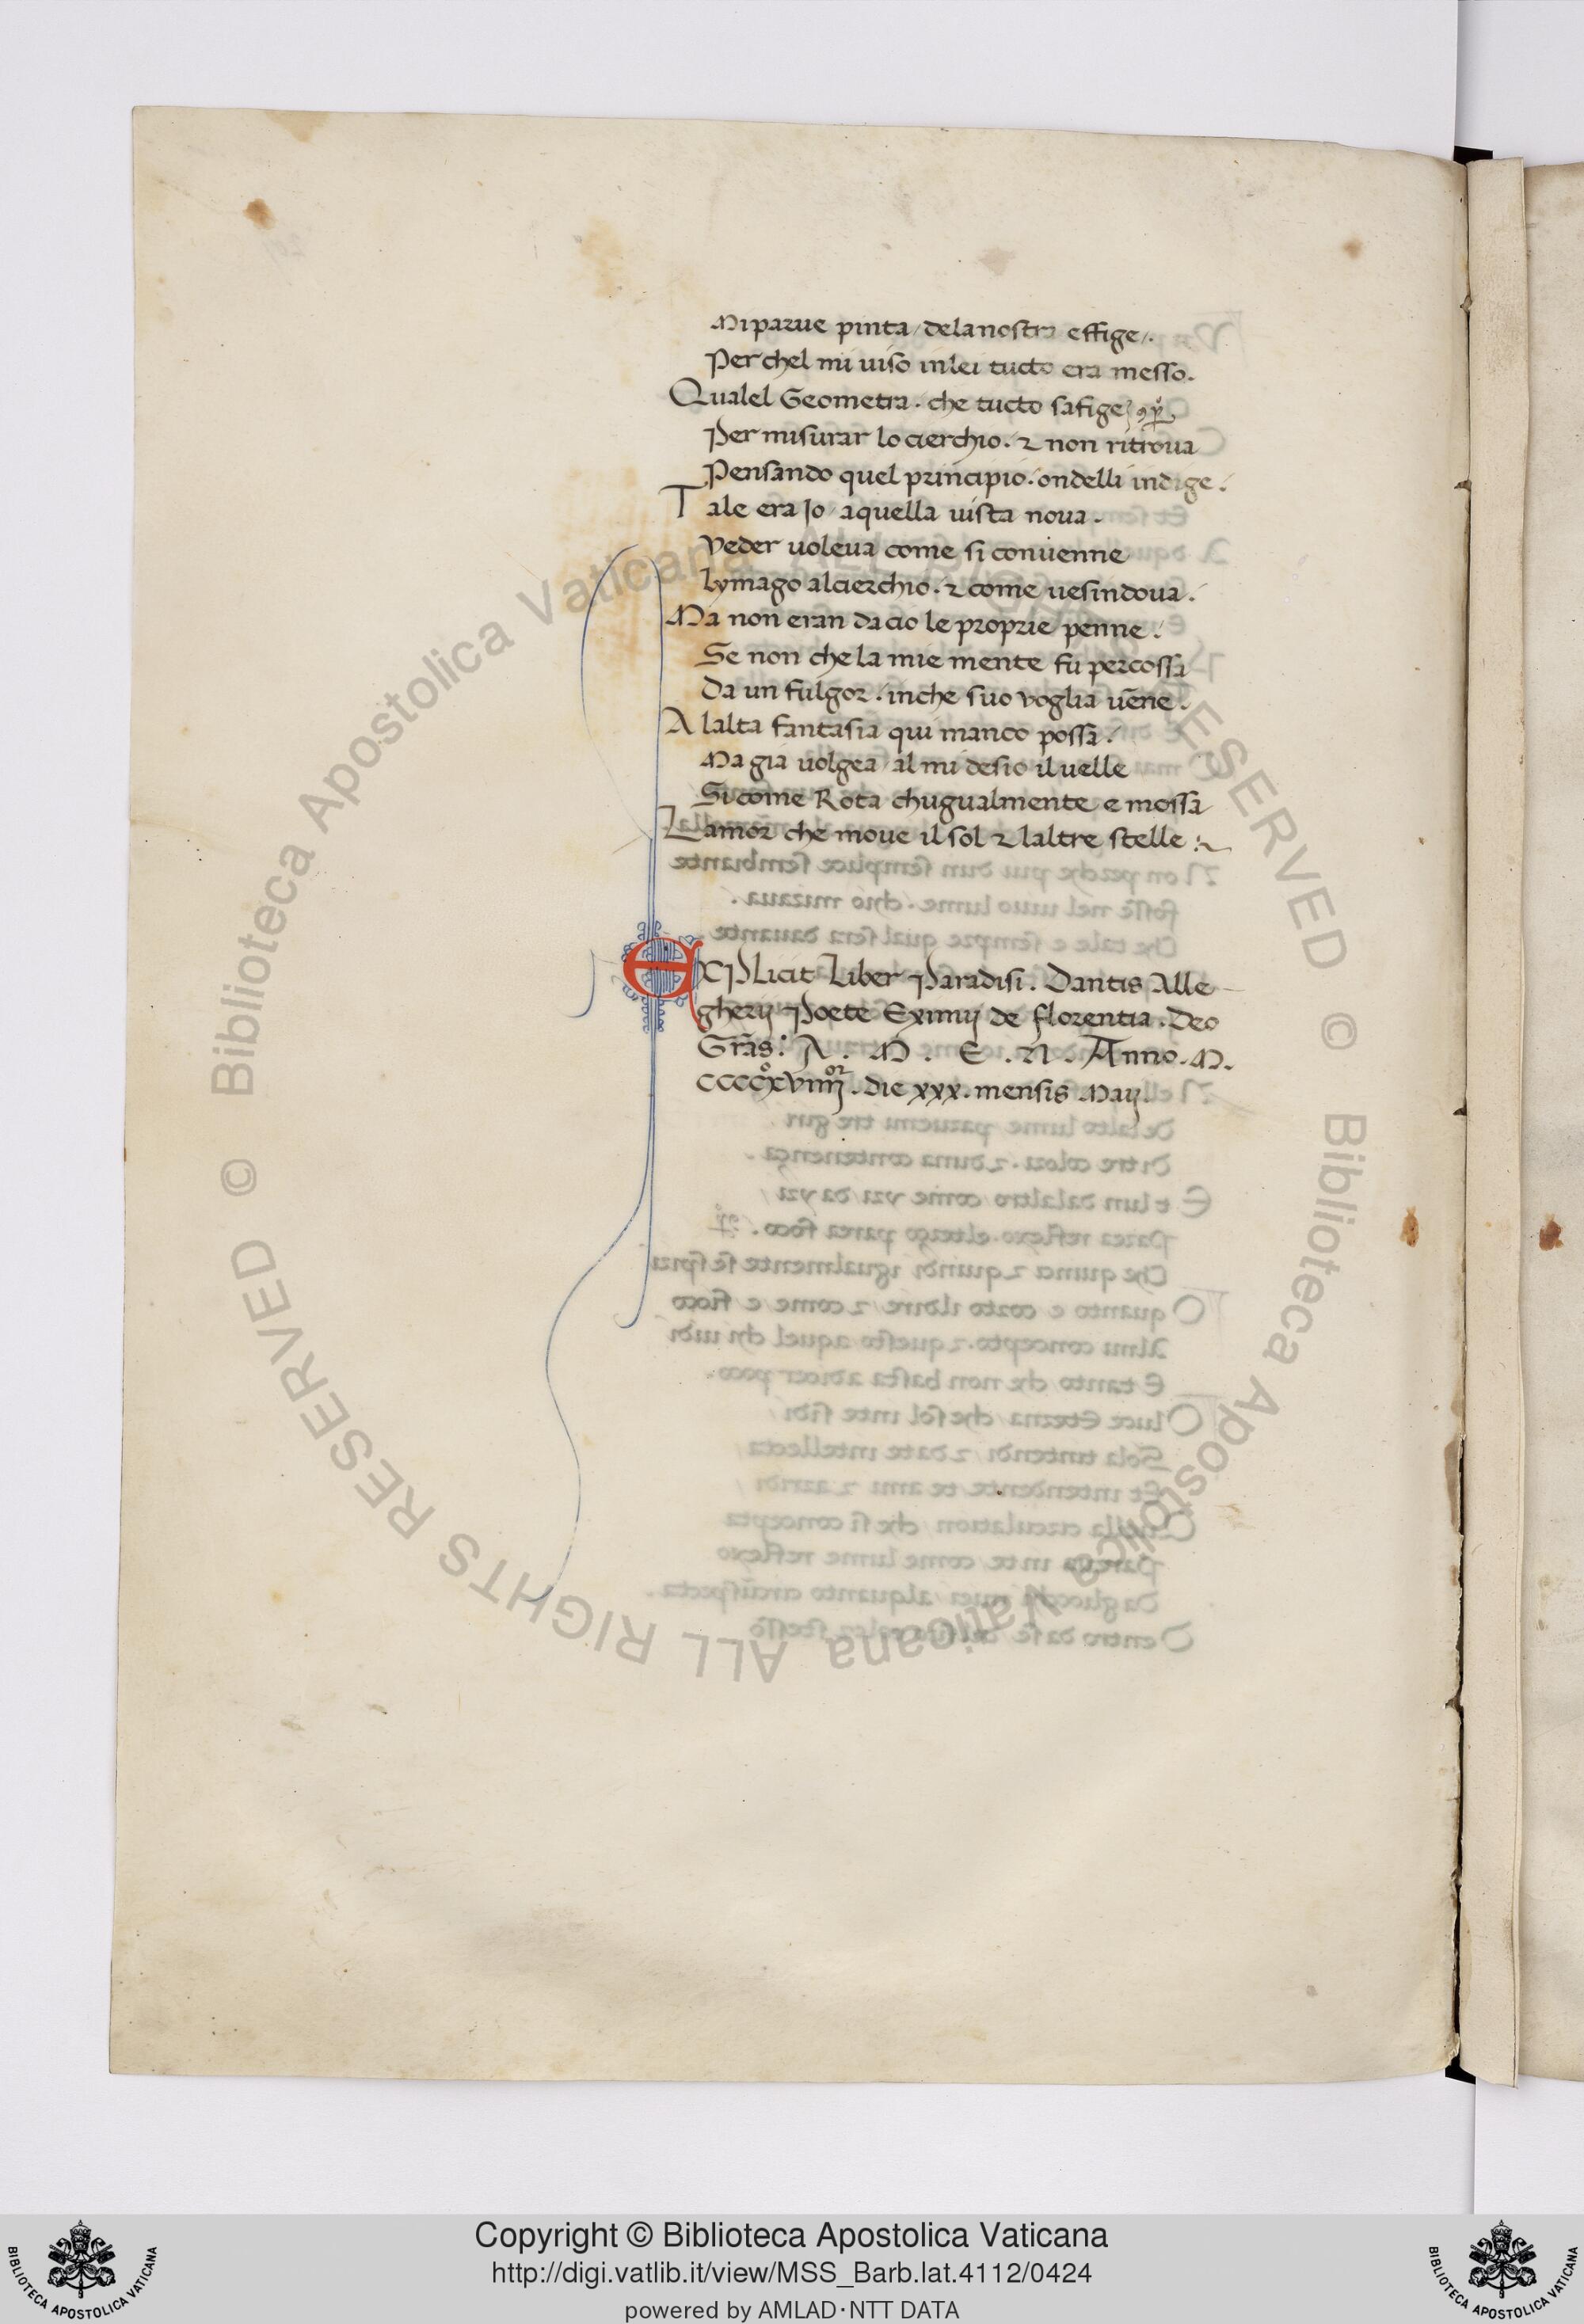 Mi parue pinta / dela nostra effige /.
Per chel mi uiso in lei tucto era messo.
Qualel Geometra. che tucto safige
Per misurar lo cierchio. ⁊ non ritroua
Pensando quel principio. ondelli indige.
Tale era Jo aquella uista noua.
Veder uoleua come si conuenne
Lymago alcierchio. ⁊ come uesindoua.
Ma non eran dacio le proprie penne.
Se non che la mie mente fu percossa
Da un fulgor. inche suo voglia uēne.
Alalta fantasia qui manco possa.
Ma gia uolgea al mi desio il uelle
Sicome Rota chugualmente e mossa
Lamor che moue il sol ⁊ laltre stelle :~
Explicit Liber Paradisi. Dantis Alle
gherij Poete Eximij de florentia. Deo
Grās: A. M. E. N. Anno. M.
CCCCºXViiijor. die xxx. mensis Maij.
© Biblioteca Apostolica Vaticana ALL RIGHTS RESERVED
© Biblioteca Apostolica Vaticana ALL RIGHTS RESERVED
Copyright © Biblioteca Apostolica Vaticana
http://digi.vatlib.it/view/MSS_Barb.lat.4112/0424
powered by AMLAD·NTT DATA
BIBLIOTECA APOSTOLICA VATICANA
BIBLIOTECA APOSTOLICA VATICANA